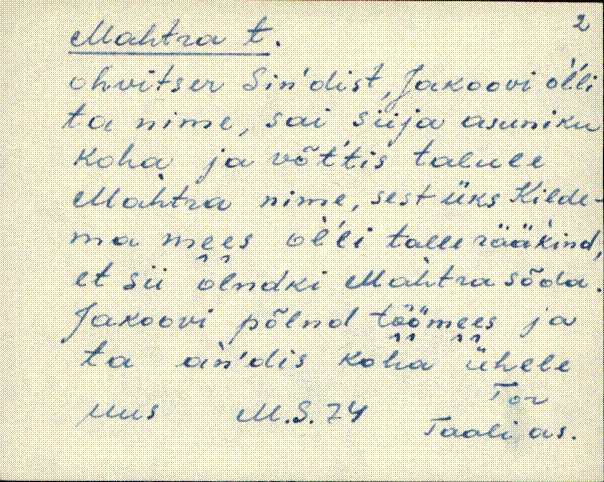 2
Mahtra t.
ohvitser Sin'dist, Jakoovi oĺĺi
ta nime, sai siija asuniku
koha ja võt́tis talule
Màhtra nime, sest üks Kilde-
ma mees òĺĺi talle rääkind,
et sii õlndki Màhtra sõda.
Jakoovi põlnd töömees ja
ta àn'dis koha ühele
Tor
uus M.S.74 Taali as.